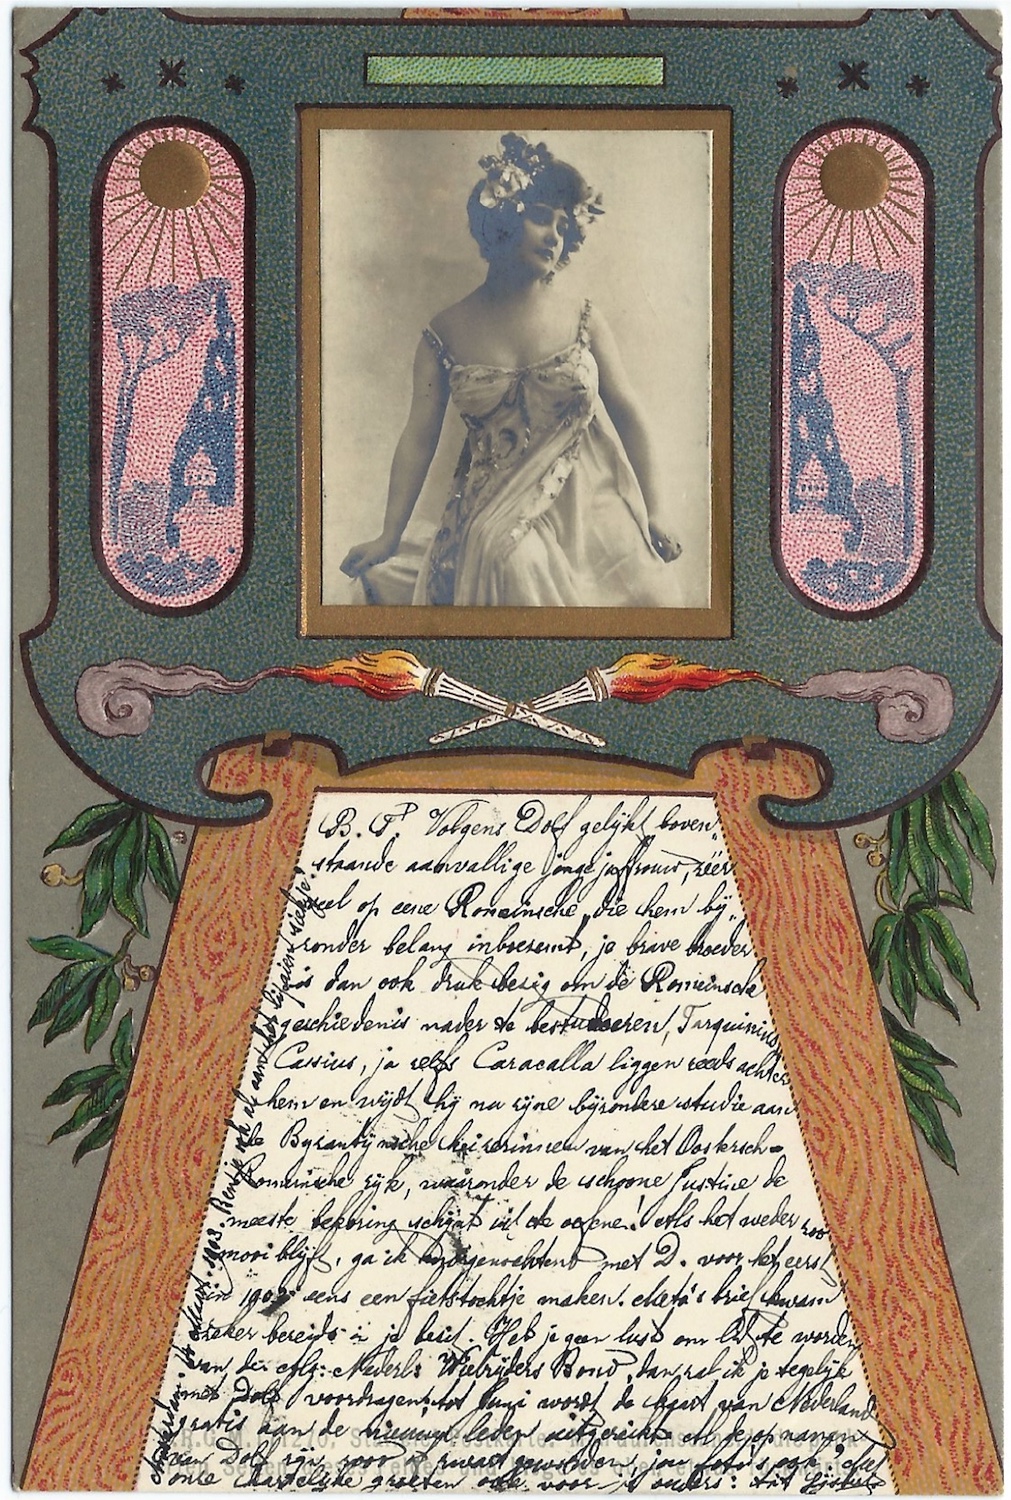 B. P. Volgens Dolf gelijkt boven„
staande aanvallige jonge juffrouw, zéér
veel op eene Romeinsche, die hem bij„
zonder belang inboezemt, je brave broeder
is dan ook druk bezig om de Romeinsche
geschiedenis nader te bestudeeren, Tarquinius
Cassius, ja zelfs Caracalla liggen reeds achter
hem en wijdt hij nu zijne bijzondere studie aan
de Byzantijnsche keizerinnen van het Oostersch=
Romeinsche rijk, waaronder de schoone Justine de
meeste bekoring schijnt uit te oefenen! Als het weder zoo
mooi blijft, ga ik morgenochtend met D. voor het eerst
in 1903 eens een fietstochtje maken. Meta's brief kwam
zeker bereids in je bezit. Heb je geen lust om lid te worden
van de Alg: Nederl: Wielrijders Bond, dan zal ik je tegelijk
met Dolf voordragen, tot Juni wordt de kaart van Nederland
gratis aan de nieuwe leden uitgereikt. Al de opnamen
van Dolf zijn zoo zwart geworden, jou foto's ook? Met
onze hartelijke groeten ook voor je ouders: tot
Amsterdam. Maart. 1903. Ben je ook al aan het